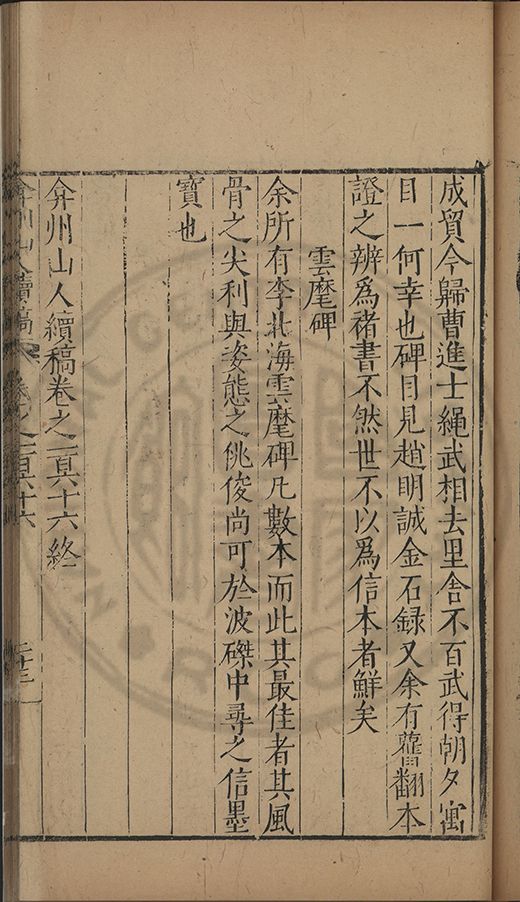 成貿今歸曹進士繩武相去里舍不百武得朝夕寓
目一何幸也碑目見趙明誠金石録又余有舊翻本
證之辨爲褚書不然世不以爲信本者鮮矣
雲麾碑
余所有李北海雲麾碑凡數本而此其最佳者其風
骨之尖利與姿態之佻俊尚可於波磔中尋之信墨
寶也
弇州山人續稿卷之一百六十六終
弇州山人續稿
卷之一百六十六
二十三